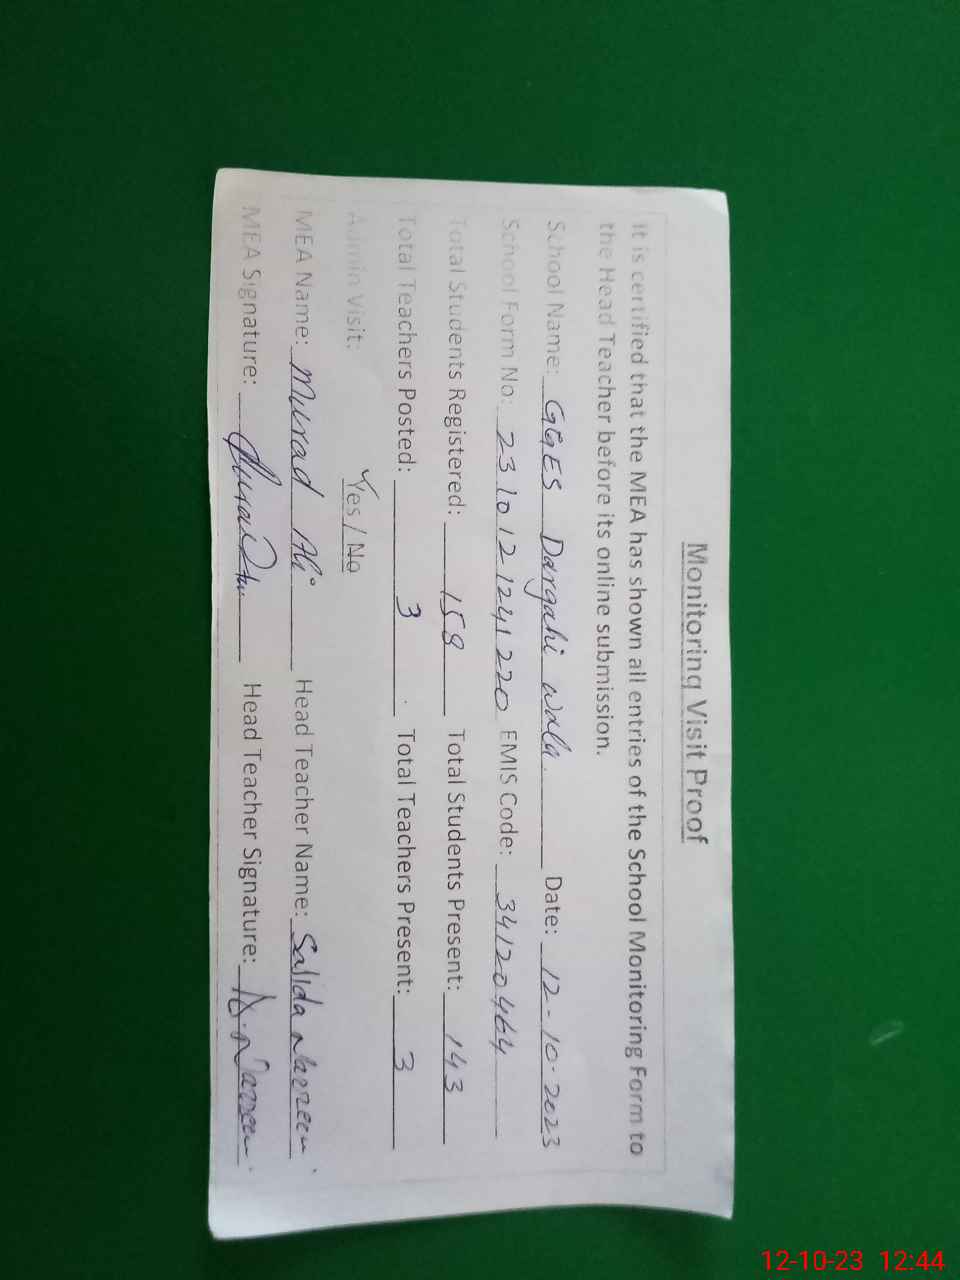 Monitoring Visit Proof
It is certified that the MEA has shown all entries of the School Monitoring Form to
the Head Teacher before its online submission.
School Name: GGES Dargahi wala. Date: 12-10-2023
School Form No: 2310121241220 EMIS Code: 34120464
Total Students Registered: 158 Total Students Present: 143
Total Teachers Posted: 3 Total Teachers Present: 3
Admin Visit: Yes / No
MEA Name: Murad Ali Head Teacher Name: Sajida Nasreen
MEA Signature: Head Teacher Signature:
12-10-23 12:44